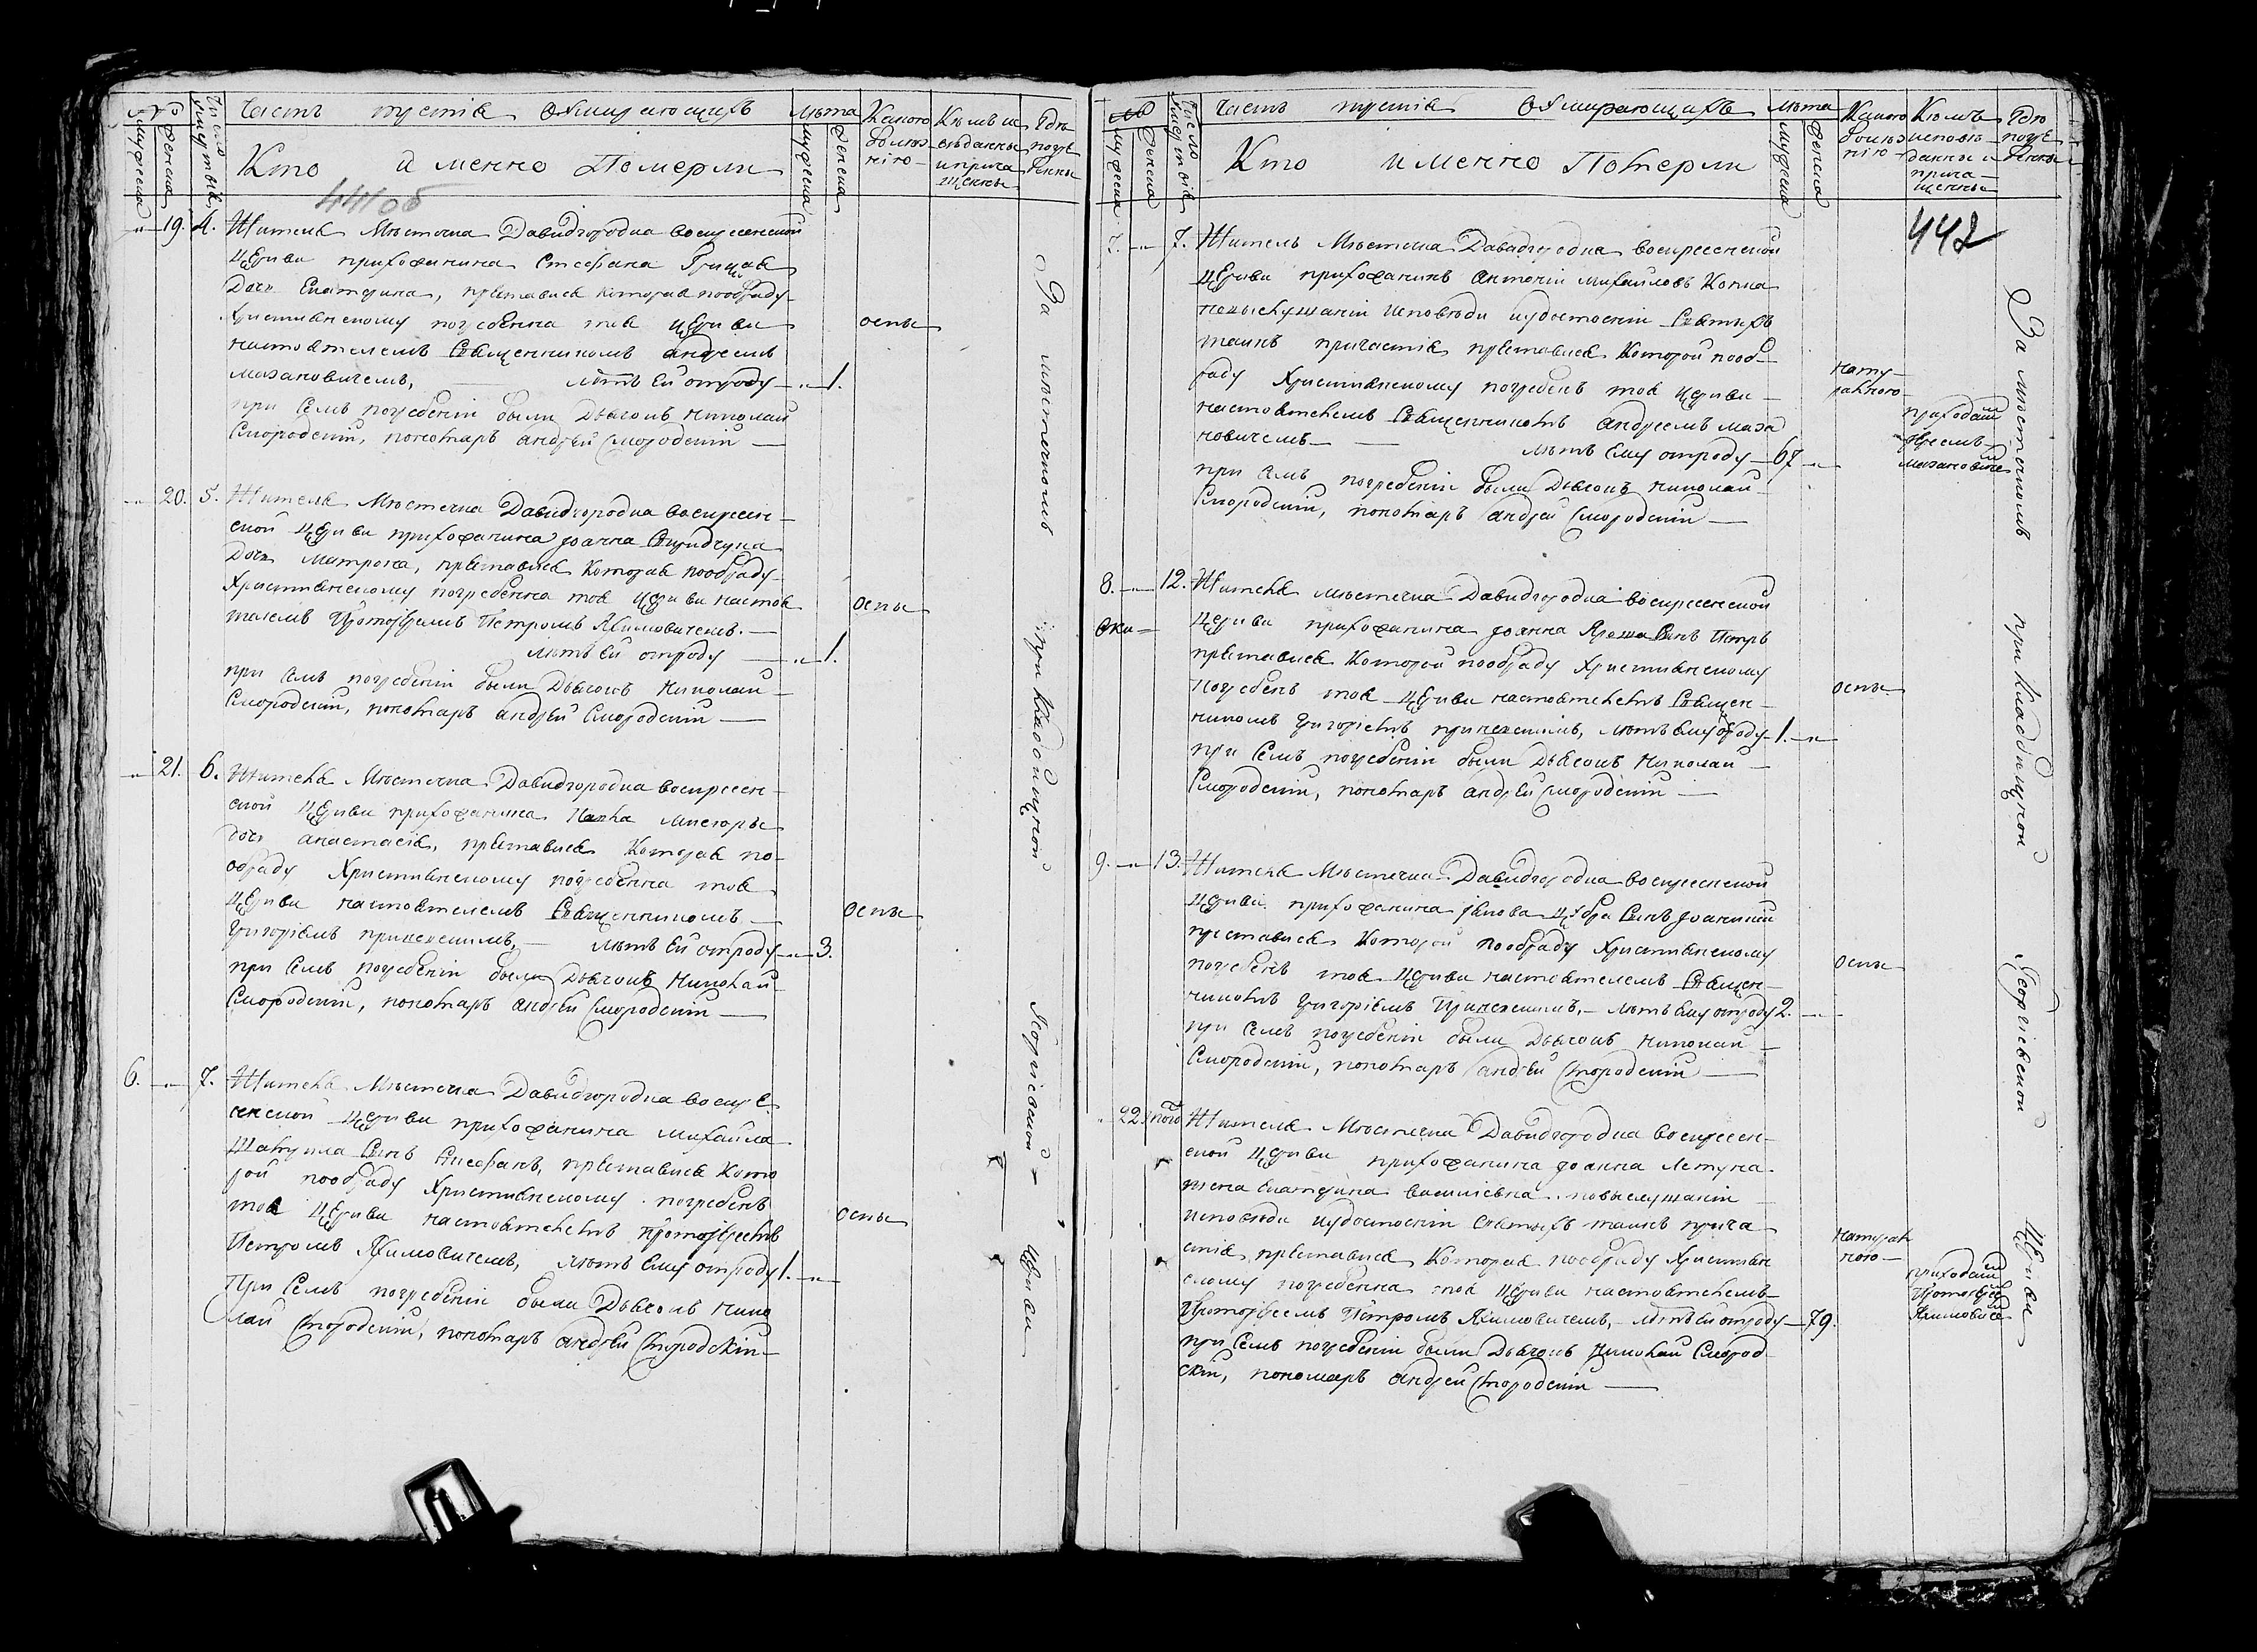 Часть третія О Умирающихъ
Кто именно Померли
Лѣта
Какого болѣзнію
Гдѣ погребенны
441 об
19. 4. Жителя Мѣстечка Давидгородка воскресенской
Церкви прихожанина Стефана Грицая
дочь Екатерина, преставися которая пообряду
Христіянскому погребенна тоя Церкви
настоятелемъ Священникомъ андреемъ
мазановичемъ, лѣтъ Ей отроду 1.
оспы
при семъ погребеніи были Дьячокъ николай
Смородскій, пономарь андрей Смородскій
20. 5. Жителя Мѣстечка Давидгородка воскресен-
ской Церкви прихожанина іоанна Свиридчука
дочь Матрона, преставися Которая пообряду
Христіянскому погребенна тоя Церкви настоя
телемъ Протоіереемъ Петромъ Якимовичемъ.
лѣтъ Ей отроду 1.
оспы
при семъ погребеніи были Дьячокъ николай
Смородскій, пономарь андрей Смородскій
21. 6. Жителя Мѣстечка Давидгородка воскресен-
ской Церкви прихожанина
дочь анастасія, преставися Которая по-
обряду Христіянскому погребенна тоя
Церкви настоятелемъ Священникомъ
Григоріемъ лѣтъ Ей отроду 3.
оспы
при Семъ погребеніи были Дьячокъ Николай
Смородскій, пономарь андрей Смородскій
6. 7. Жителя Мѣстечка Давидгородка воскре
сенской Церкви прихожанина михайла
Сынъ Стефанъ, преставися Кото
рой пообряду Христіянскому погребенъ
тоя Церкви настоятелемъ протоіереемъ
Петромъ Якимовичемъ, лѣтъ Ему отроду 1.
оспы
При Семъ погребеніи были Дьячокъ Нико
лай Смородскій, пономарь андрей Смородскій
За мѣстечкомъ при Кладбищной Георгіевской Церкви
Часть третія О Умирающихъ
Кто именно Померли
Лѣта
Какого болѣзнію
Кѣмъ исповѣданны и причащенны
Гдѣ погребенны
442
7. 7. Житель Мѣстечка Давидгородка воскресенской
Церкви прихожанинъ антоній михайловъ
повыслушаніи исповѣди иудостоеніи Святыхъ
таинъ причастія преставися Которой пооб-
ряду Христіянскому погребенъ тоя Церкви
настоятелемъ Священникомъ андреемъ маза
новичемъ лѣтъ Ему отроду 67
натуральною
при семъ погребеніи были Дьячокъ николай
Смородскій, пономарь андрей Смородскій
8. 12. Жителя мѣстечка Давидгородка воскресенской
Церкви прихожанина іоанна Сынъ Петръ
преставися Которой пообряду Христіянскому
погребенъ тоя Церкви настоятелемъ Священ-
никомъ Григоріемъ лѣтъ Ему отроду 1.
оспы
при Семъ погребеніи были Дьячокъ Николай
Смородскій, пономарь андрей Смородскій
9. 13. Жителя Мѣстечка Давидгородка воскресенской
Церкви прихожанина Сынъ
преставися Которой пообряду Христіянскому
погребенъ тоя Церкви настоятелемъ Священ-
никомъ Григоріемъ лѣтъ Ему отроду 2.
оспы
при Семъ погребеніи были Дьячокъ николай
Смородскій, пономарь андрей Смородскій
22. Жителя Мѣстечка Давидгородка воскресен-
ской Церкви прихожанина іоанна
жена Екатерина васильевна повыслушаніи
исповѣди иудостоеніи святыхъ таинъ прича
стія преставися Которая пообряду Христіян
скому погребенна тоя Церкви настоятелемъ
Протоіереемъ Петромъ Якимовичемъ, лѣтъ Ей отроду 79.
натуральною
при Семъ погребеніи были Дьячокъ Николай Смород
скій, пономарь андрей Смородскій
За мѣстечкомъ при Кладбищной Георгіевской Церкви